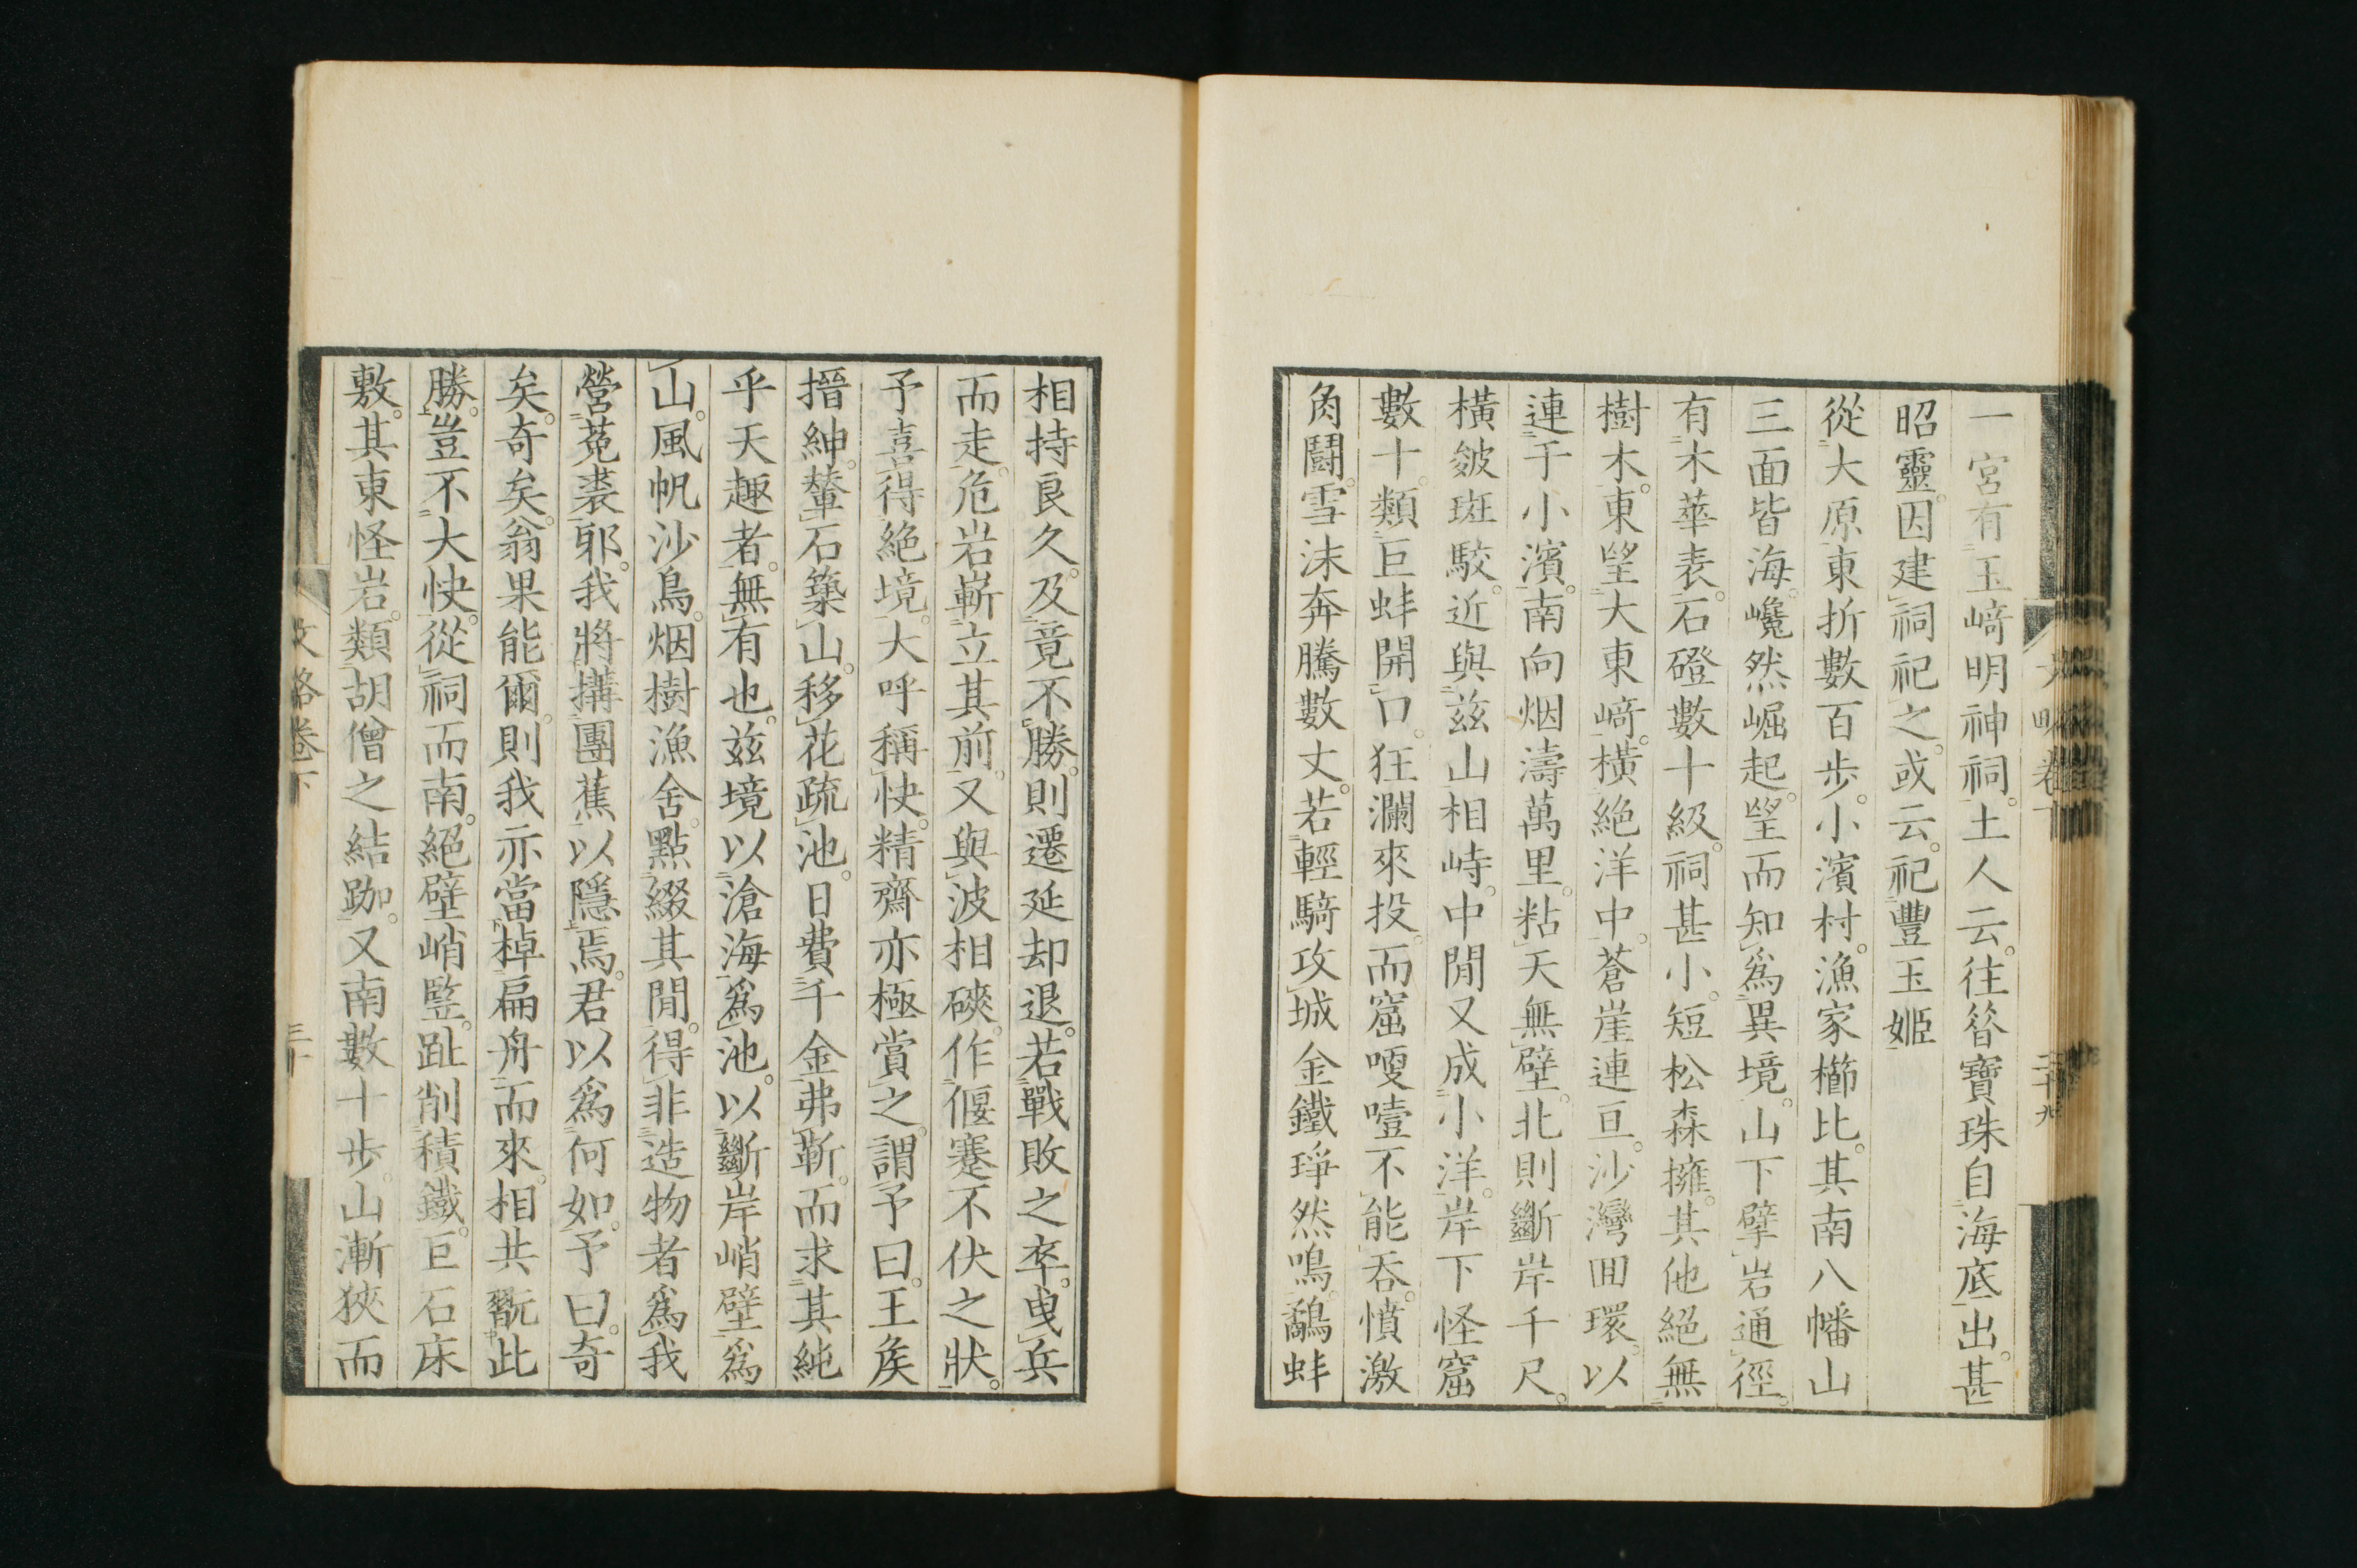 一宮有玉﨑明神祠。土人云。往昝寶珠自海底出。甚
昭靈。因建祠祀之。或云。祀豐玉姬
從大原東折數百步。小濱村。漁家櫛比。其南八幡山
三面皆海。巉然崛起。望而知爲異境。山下擘岩通徑。
有木華表。石磴數十級。祠甚小。短松森擁。其他絕無
樹木。東望大東﨑。橫絕洋中。蒼崖連亘。沙灣囬環。以
連于小濱。南向烟濤萬里。粘天無壁。北則斷岸千尺。
橫皴斑駁。近與兹山相峙。中閒又成小洋。岸下怪窟
數十。類巨蚌開口。狂瀾來投。而窟嗄噎不能吞。憤激
角鬪。雪沫奔騰數丈。若輕騎攻城金鐵琤然鳴。鷸蚌
二十九
相持良久。及竟不勝。則遷延却退。若戰敗之卒。曳兵
而走。危岩嶄立其前。又與波相磢。作偃蹇不伏之狀。
予喜得絕境。大呼稱快。精齋亦極賞之。謂予曰。王矦
搢紳。輦石築山。移花疏池。日費千金弗靳。而求其純
乎天趣者。無有也。兹境以滄海爲池。以斷岸峭壁爲
山。風帆沙鳥。烟樹漁舍。點綴其閒。得非造物者爲我
營菟裘邪。我將搆團蕉以隱焉。君以爲何如。予曰。奇
矣。奇矣。翁果能爾。則我亦當棹扁舟而來。相共翫此
勝。豈不大快。從祠而南。絕壁峭竪。趾削積鐵。巨石床
敷。其東怪岩。類胡僧之結跏。又南數十步。山漸狹而
文略卷下
三十